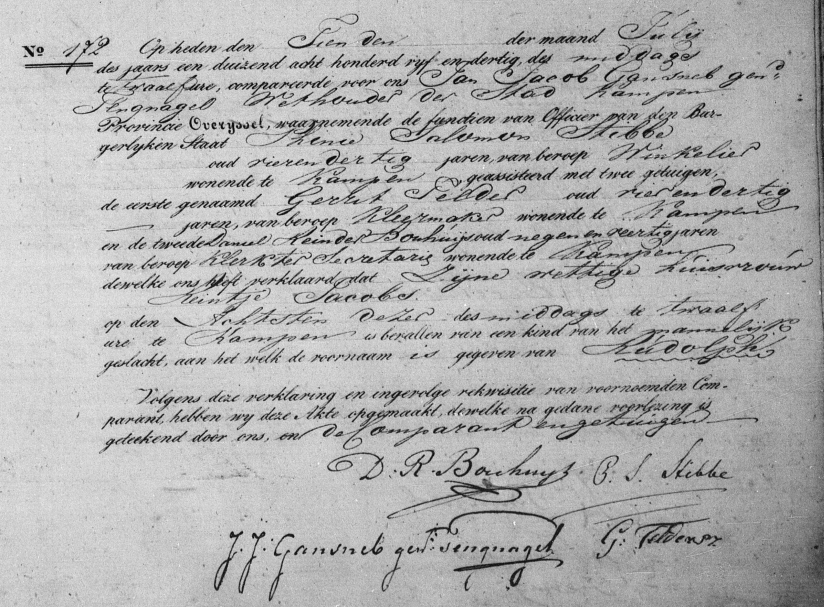 No 172 Op heden den Tienden der maand Julij
des jaars een duizend acht honderd vyf en dertig, des middags
te twaalf ure, compareerde voor ons Jan Jacob Gansneb gend
Tengnagel Wethouder der Stad Kampen
Provincie Overyssel, waarnemende de functien van Officier van den Bur-
gerlyken Staat Phinie Salomon Stibbe
oud vierendertig jaren, van beroep Winkelier
wonende te Kampen geassisteerd met twee getuigen,
de eerste genaamd Gerrit Telder oud vier en dertig
jaren, van beroep Kleermaker wonende te Kampen
en de tweede Daniel Reinder Bouhuijs oud negen en veertig jaren
van beroep Klerk ter Secretarie wonende te Kampen
dewelke ons heeft verklaard dat Zijne wettige huisvrouw
Reintje Jacobs
op den Achtsten dezer des middags te twaalf
ure te Kampen is bevallen van een kind van het mannelijk
geslacht, aan het welk de voornaam is gegeven van Rudolph
Volgens deze verklaring en ingevolge rekwisitie van voornoemden Com-
parant, hebben wy deze Akte opgemaakt, dewelke na gedane voorlezing is
geteekend door ons, en de Comparant en getuigen
D. R. Bouhuys P. S. Stibbe
J. J. Gansneb gend Tengnagel G. Telder